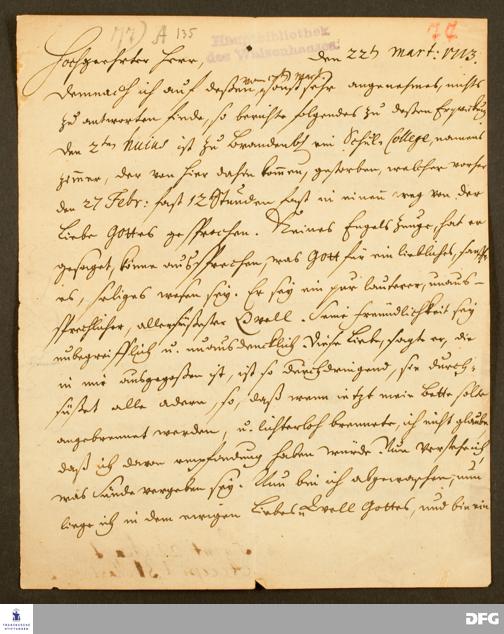 77) A 135
77
Hauptbibliothek
des Waisenhauses
Hochgeehrter Herr, den 22ten Mart: 1713.
Demnach ich auf deßen, vom 17ten Mart. sonst sehr angenehmes, nichts
zu antworten finde, so berichte folgendes zu deßen Erqwikung
Den 2ten huius ist zu Brandenb. ein Schul-College, namens
Zimmer, der von hier dahin kommen, gestorben, welcher vorher
den 27 Febr: fast 12 Stunden fast in einem weg von der
Liebe Gottes gesprochen. Keines Engels Zunge, hat er
gesaget, könne aussprechen, was Gott für ein liebliches, sanff-
tes, seliges wesen sey. Er sey ein pur lauterer, unaus-
sprechlicher, allersüßester Qvell. Seine freundlichkeit sey
unbegreifflich u. unausdencklich Diese Liebe, sagte er, die
in mir ausgegoßen ist, ist so durchdringend, sie durch-
süßet alle adern, so, daß wenn ietzt mein bette solte
angebrennet werden, u. lichterloh brennete, ich nicht glaube
daß ich davon empfindung haben würde Nun verstehe ich,
was Sünde vergeben sey. Nun bin ich abgewaschen, nun
liege ich in dem ewigen Liebes Qvell Gottes, und bin ein
FRANCKESCHE
STIFTUNGEN
DFG